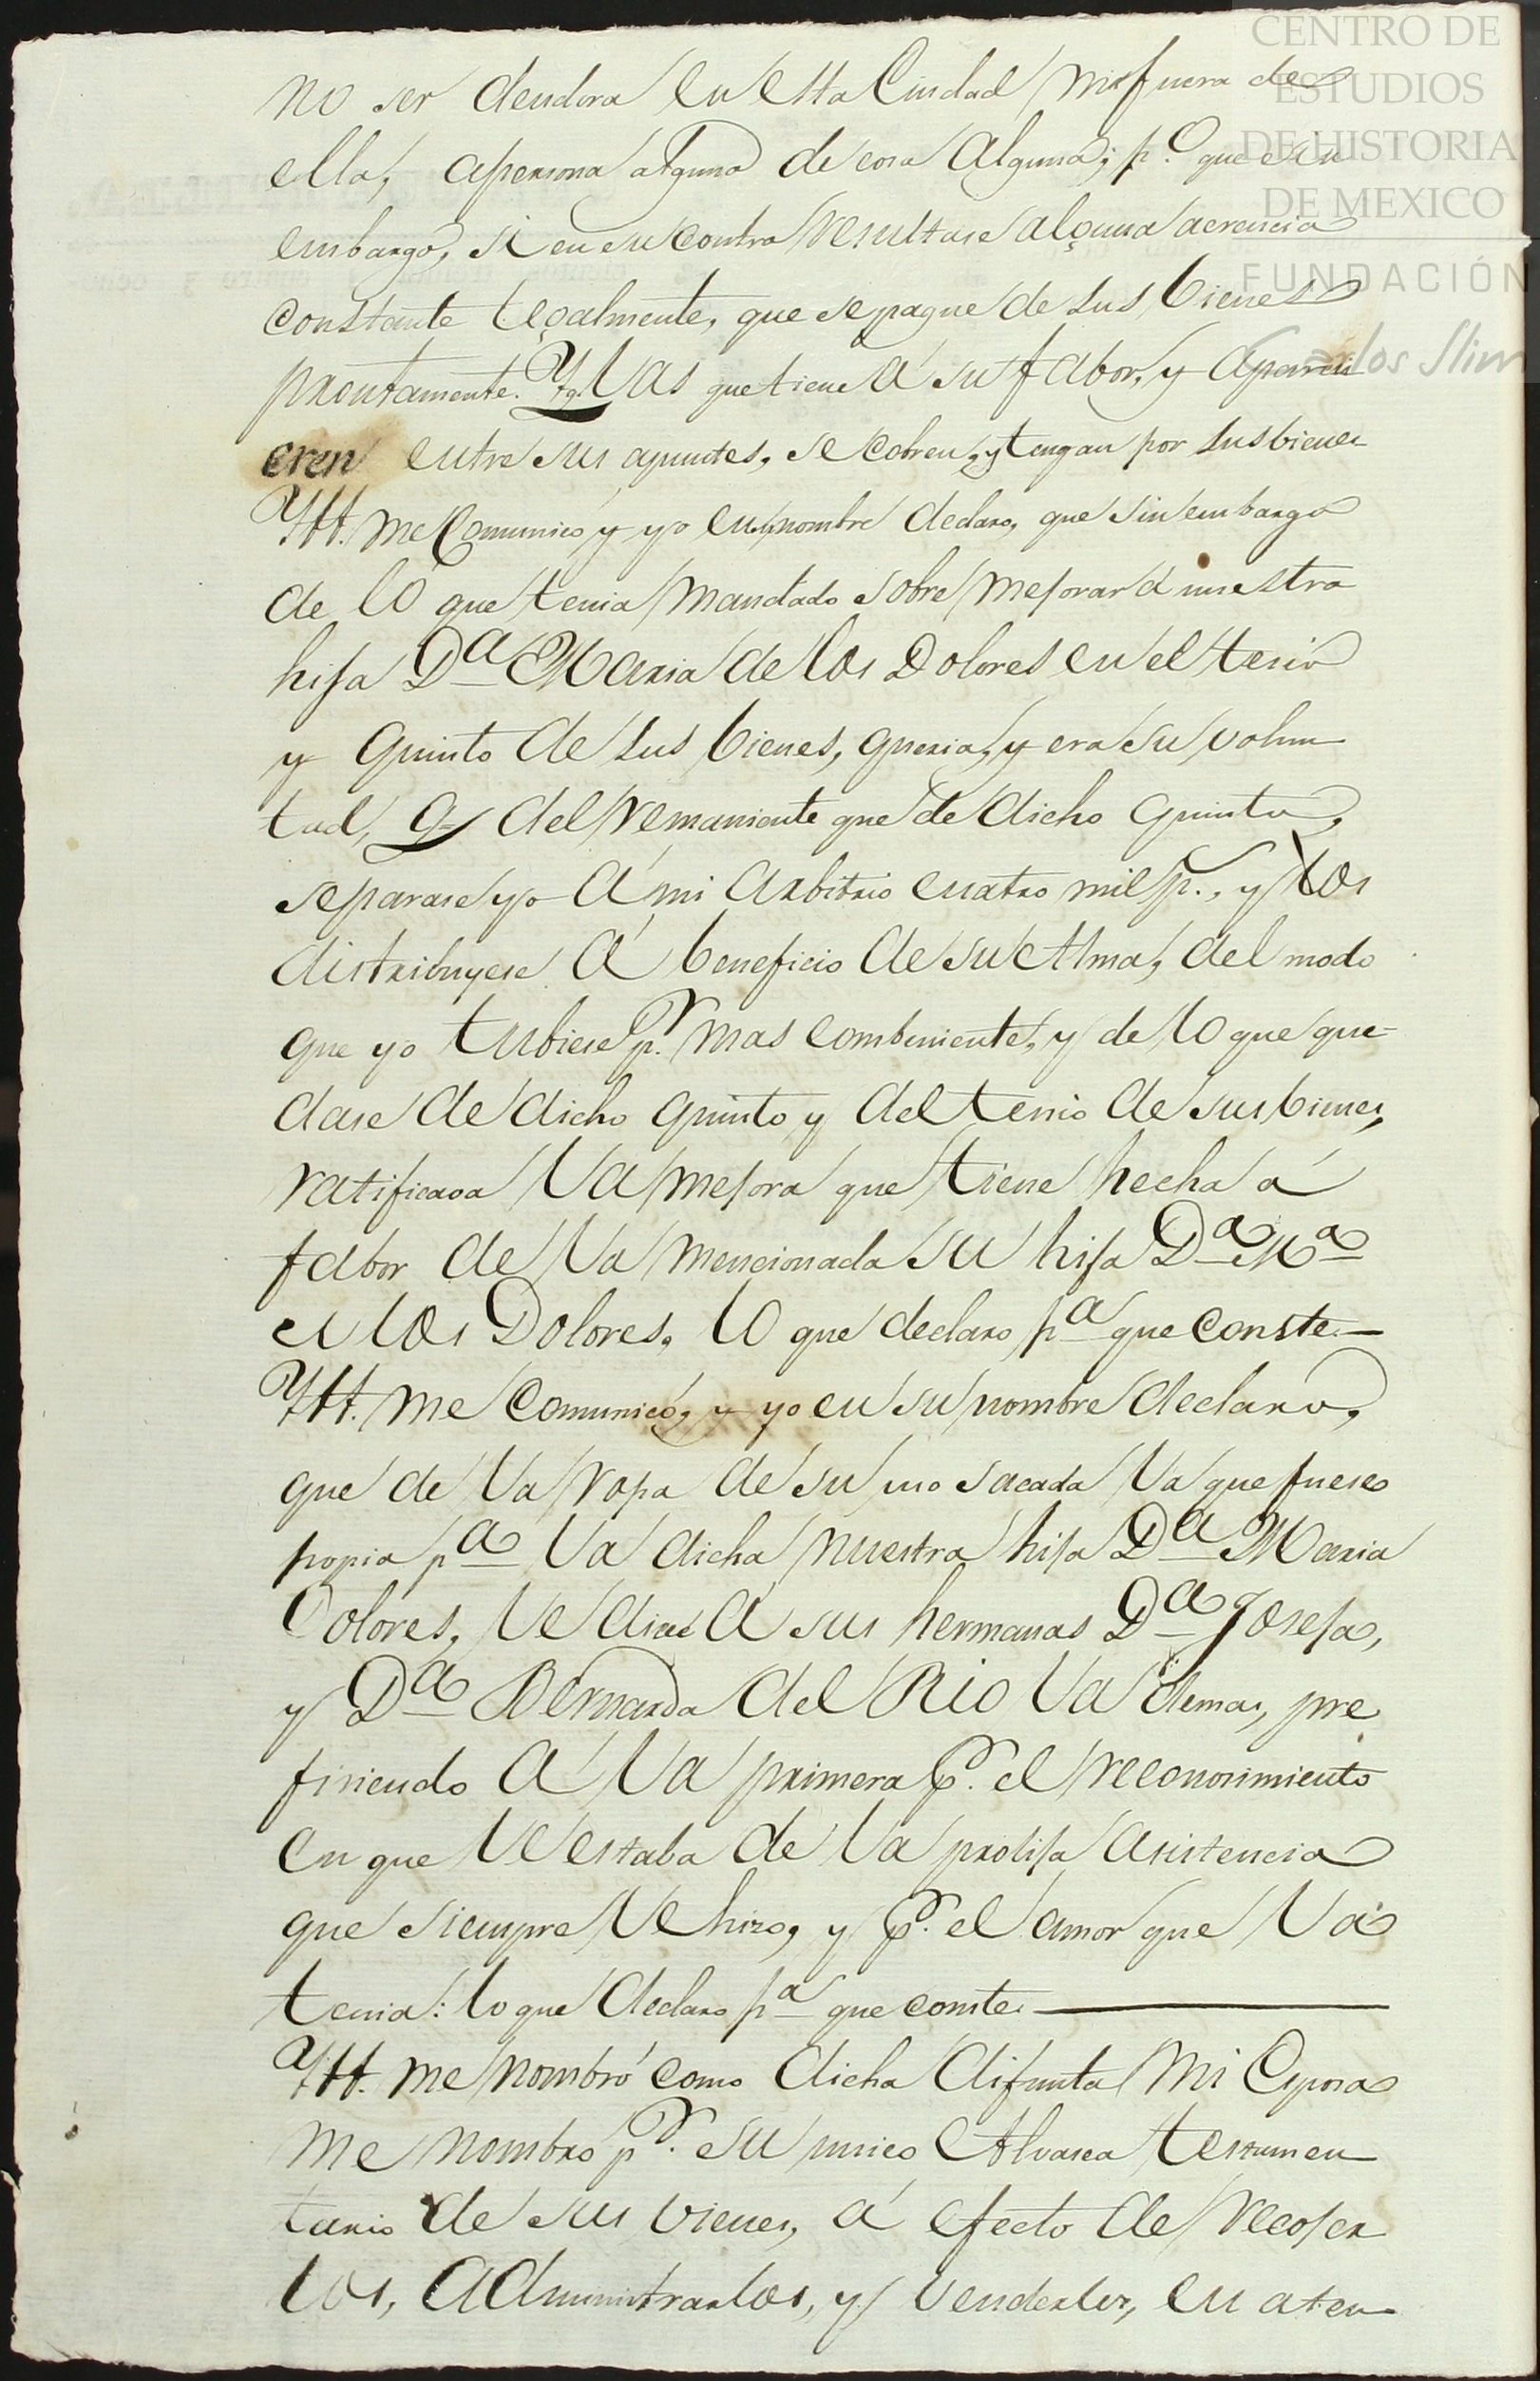 CENTRO DE
ESTUDIOS
DE HISTORIA
DE MEXICO
FUNDACIÓN
Carlos Slim
no ser deudora en esta Ciudad ni fuera de
ella, apersona alguna de cosa alguna; p.o que sin
embargo, si en su contra resultase alguna acrencia
constante legalmente, que se pague de sus bienes
prontamente. Yq.e las que tiene á su fabor, y apareci
eren entre sus apuntes, se cobren, y tengan por sus bienes
Ytt. me comunicó y yo en su nombre declaro, que sin embargo
de lo que tenia mandado sobre mejorar á nuestra
hija D.a Maria de los Dolores en el tercio
y quinto de sus bienes, queria, y era su volun
tad, q.e del remaniente que de dicho quinto,
separase yo á mi arbitrio cuatro mil p.s, y los
distribuyese á beneficio de su Alma, del modo
que yo tubiese p.r mas combeniente, y de lo que que-
dase de dicho quinto y del tercio de sus bienes,
ratificava la mejora que tiene hecha á
fabor de la mencionada su hija D.a M.a
de los Dolores, lo que declaro p.a que conste.—
Ytt. me comunicó, y yo en su nombre declaro,
que de la ropa de su uso sacada la que fuese
propia p.a la dicha nuestra hija D.a Maria
Dolores, le diese á sus hermanas D.a Josefa,
y D.a Bernarda del Rio la demas, pre
firiendo á la primera p.r el reconosimiento
en que le estaba de la prolija asistencia
que siempre le hizo, y p.r el amor que la
tenia: lo que declaro p.a que conste.—
Ytt. me nombró como dicha difunta mi Esposa
me nombró p.r su unico Albasea testamen
tario de sus vienes, á efecto de recojer
los, administrarlos, y venderlos, en aten